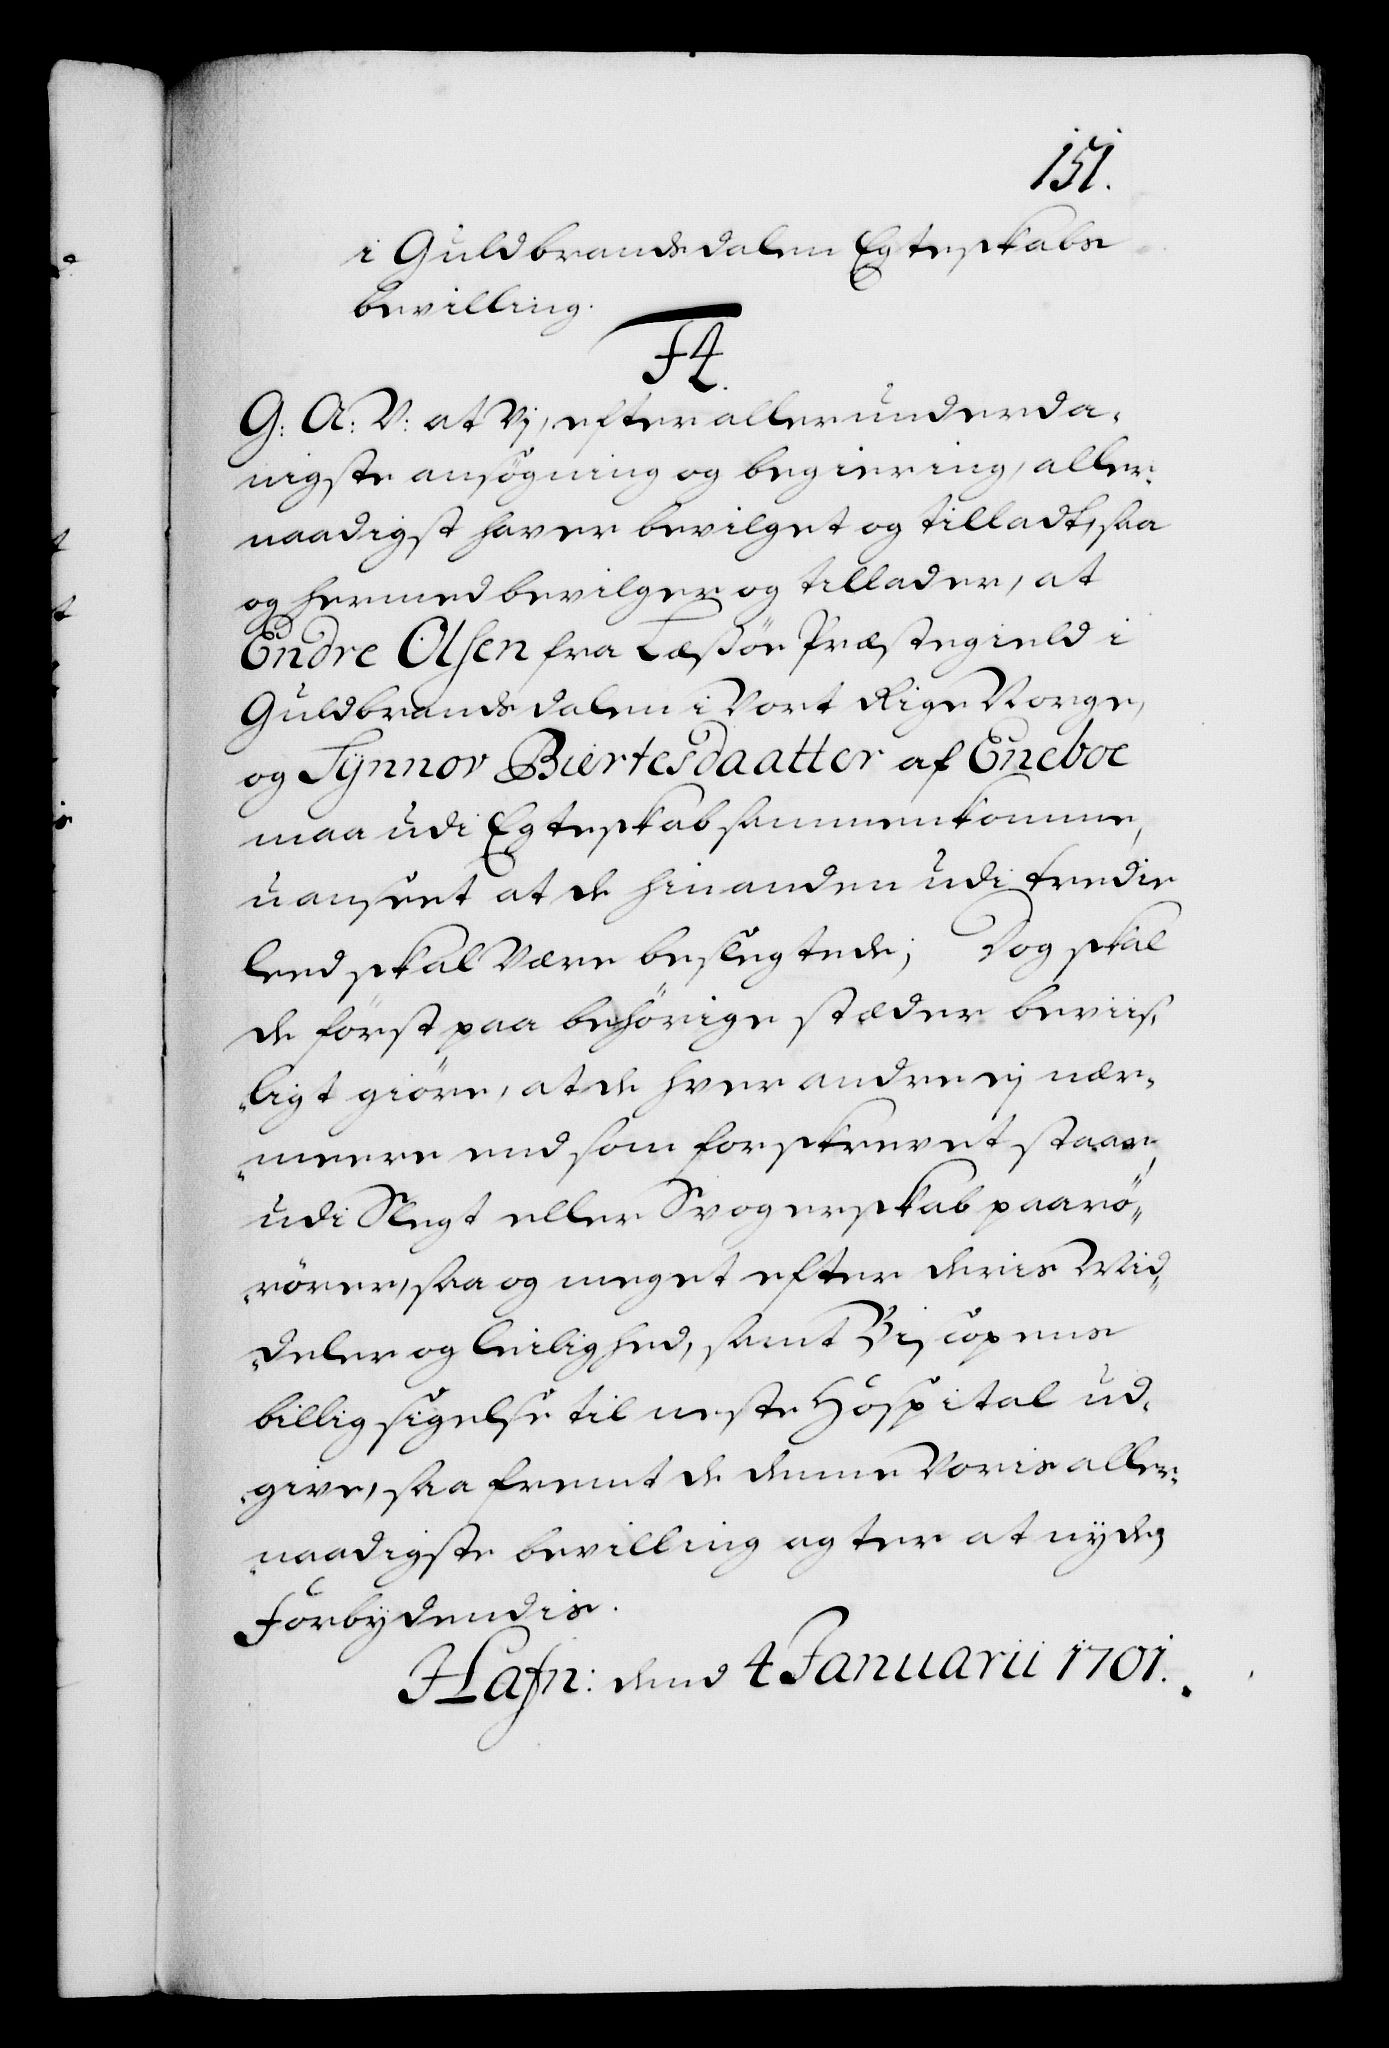 151.
i Guldbrandsdalen Egteskabs
bevilling.
F4.
G: A: V: at Vj, efter allerunderda-
nigste ansögning og begiering, aller-
naadigst haver bevilget og tilladt, saa
og hermed bevilger og tillader, at
Endre Olsen fra Læssöe Præstegield i
Guldbrandsdalen i Vort Rige Norge,
og Synnov Biertesdaatter af Eneboe
maa udi Egteskab sammenkomme,
uanseet at de hinanden udi tredie
leed skal Være beslegtede; Dog skal
de först paa behörige stæder beviis-
ligt giöre, at de hver andre ej nær-
meere end som forskrevet staar,
udi Slegt eller Svogerskab paarö-
rörer, saa og meget efter deris Mid-
deler og leilighed, samt Biscopens
billigsigelse til neste Hospital ud-
give, saa fremt de denne Voris aller-
naadigste bevilling agter at nyde,
Forbydendis.
Hafn: dend 4 Januarii 1701.